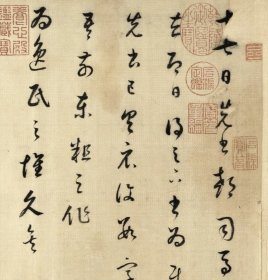 十七日先書郗司馬
去即日得足下書為慰
先書以具示復數字
吾前東粗足作
為逸民之懷久矣
養心殿鑑藏寶